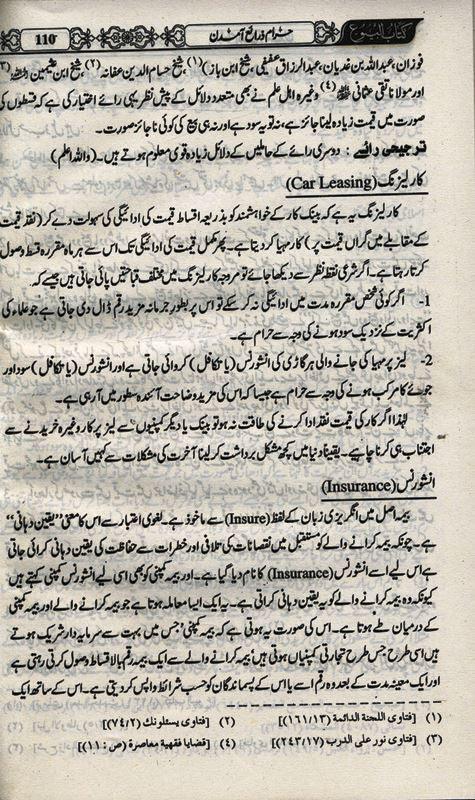 کتاب البیوع
حرام ذرائع آمدن
110
فوزان، عبداللہ بن غدیان، عبدالرزاق عفیفی، شیخ ابن باز)(۱)، شیخ حسام الدین عفانہ(۲)، شیخ ابن عثیمین(۳)
اور مولانا تقی عثمانی (۴) وغیرہ اہل علم نے بھی متعدد دلائل کے پیش نظر یہی رائے اختیار کی ہے کہ قسطوں کی
صورت میں قیمت زیادہ لینا جائز ہے، نہ تو یہ سود ہے اور نہ ہی بیع کی کوئی ناجائز صورت۔
ترجیحی رائے : دوسری رائے کے حاملین کے دلائل زیادہ قوی معلوم ہوتے ہیں۔ (واللہ اعلم)
کار لیزنگ (Car Leasing)
کار لیزنگ یہ ہے کہ بینک کار کے خواہشمند کو بذریعہ اقساط قیمت کی ادائیگی کی سہولت دے کر (نقد قیمت
کے مقابلے میں گراں قیمت پر) کار مہیا کر دیتا ہے۔ پھر مکمل قیمت کی ادائیگی تک اس سے ہر ماہ مقررہ قسط وصول
کرتا رہتا ہے۔ اگر شرعی نقطہ نظر سے دیکھا جائے تو مروجہ کار لیزنگ میں مختلف قباحتیں پائی جاتی ہیں جیسے کہ
1- اگر کوئی شخص مقررہ مدت میں ادائیگی نہ کر سکے تو اس پر بطور جرمانہ مزید رقم ڈال دی جاتی ہے جو علماء کی
اکثریت کے نزدیک سود ہونے کی وجہ سے حرام ہے۔
2- لیز پر مہیا کی جانے والی ہر گاڑی کی انشورنس (یا تکافل) کروائی جاتی ہے اور انشورنس (یا تکافل) سود اور
جوئے کا مرکب ہونے کی وجہ سے حرام ہے جیسا کہ اس کی مزید وضاحت آئندہ سطور میں آ رہی ہے۔
لہٰذا اگر کار کی قیمت نقد ادا کرنے کی طاقت نہ ہو تو بینک یا دیگر کمپنیوں سے لیز پر کار وغیرہ خریدنے سے
اجتناب ہی کرنا چاہیے۔ یقیناً دنیا میں کچھ مشکل برداشت کر لینا آخرت کی مشکلات سے کہیں آسان ہے۔
انشورنس (Insurance)
بیمہ اصل میں انگریزی زبان کے لفظ (Insure) سے ماخوذ ہے۔ لغوی اعتبار سے اس کا معنی ”یقین دہانی“
ہے۔ چونکہ بیمہ کرانے والے کو مستقبل میں نقصانات کی تلافی اور خطرات سے حفاظت کی یقین دہانی کرائی جاتی
ہے اس لیے اسے انشورنس (Insurance) کا نام دیا گیا ہے۔ اور بیمہ کمپنی کو بھی اسی لیے انشورنس کمپنی کہتے ہیں
کیونکہ وہ بیمہ کرانے والے کو یہ یقین دہانی کراتی ہے۔ یہ ایک ایسا معاملہ ہوتا ہے جو بیمہ کرانے والے اور بیمہ کمپنی
کے درمیان طے ہوتا ہے۔ اس کی صورت یہ ہوتی ہے کہ بیمہ کمپنی، جس میں بہت سے سرمایہ دار شریک ہوتے
ہیں اسی طرح جس طرح تجارتی کمپنیاں ہوتی ہیں، بیمہ کرانے والے سے ایک بیمہ رقم بالاقساط وصول کرتی رہتی ہے
اور ایک معینہ مدت کے بعد وہ رقم اسے یا اس کے پسماندگان کو حسب شرائط واپس کر دیتی ہے۔ اس کے ساتھ ایک
(۱) [فتاوی اللجنة الدائمة (۱۶۱/۱۳)] (۲) [فتاوی یسئلونک (۷۴/۲)]
(۳) [فتاوی نور علی الدرب (۲۴۳/۱۷)] (۴) [قضایا فقهیة معاصرة (ص : ۱۱)]